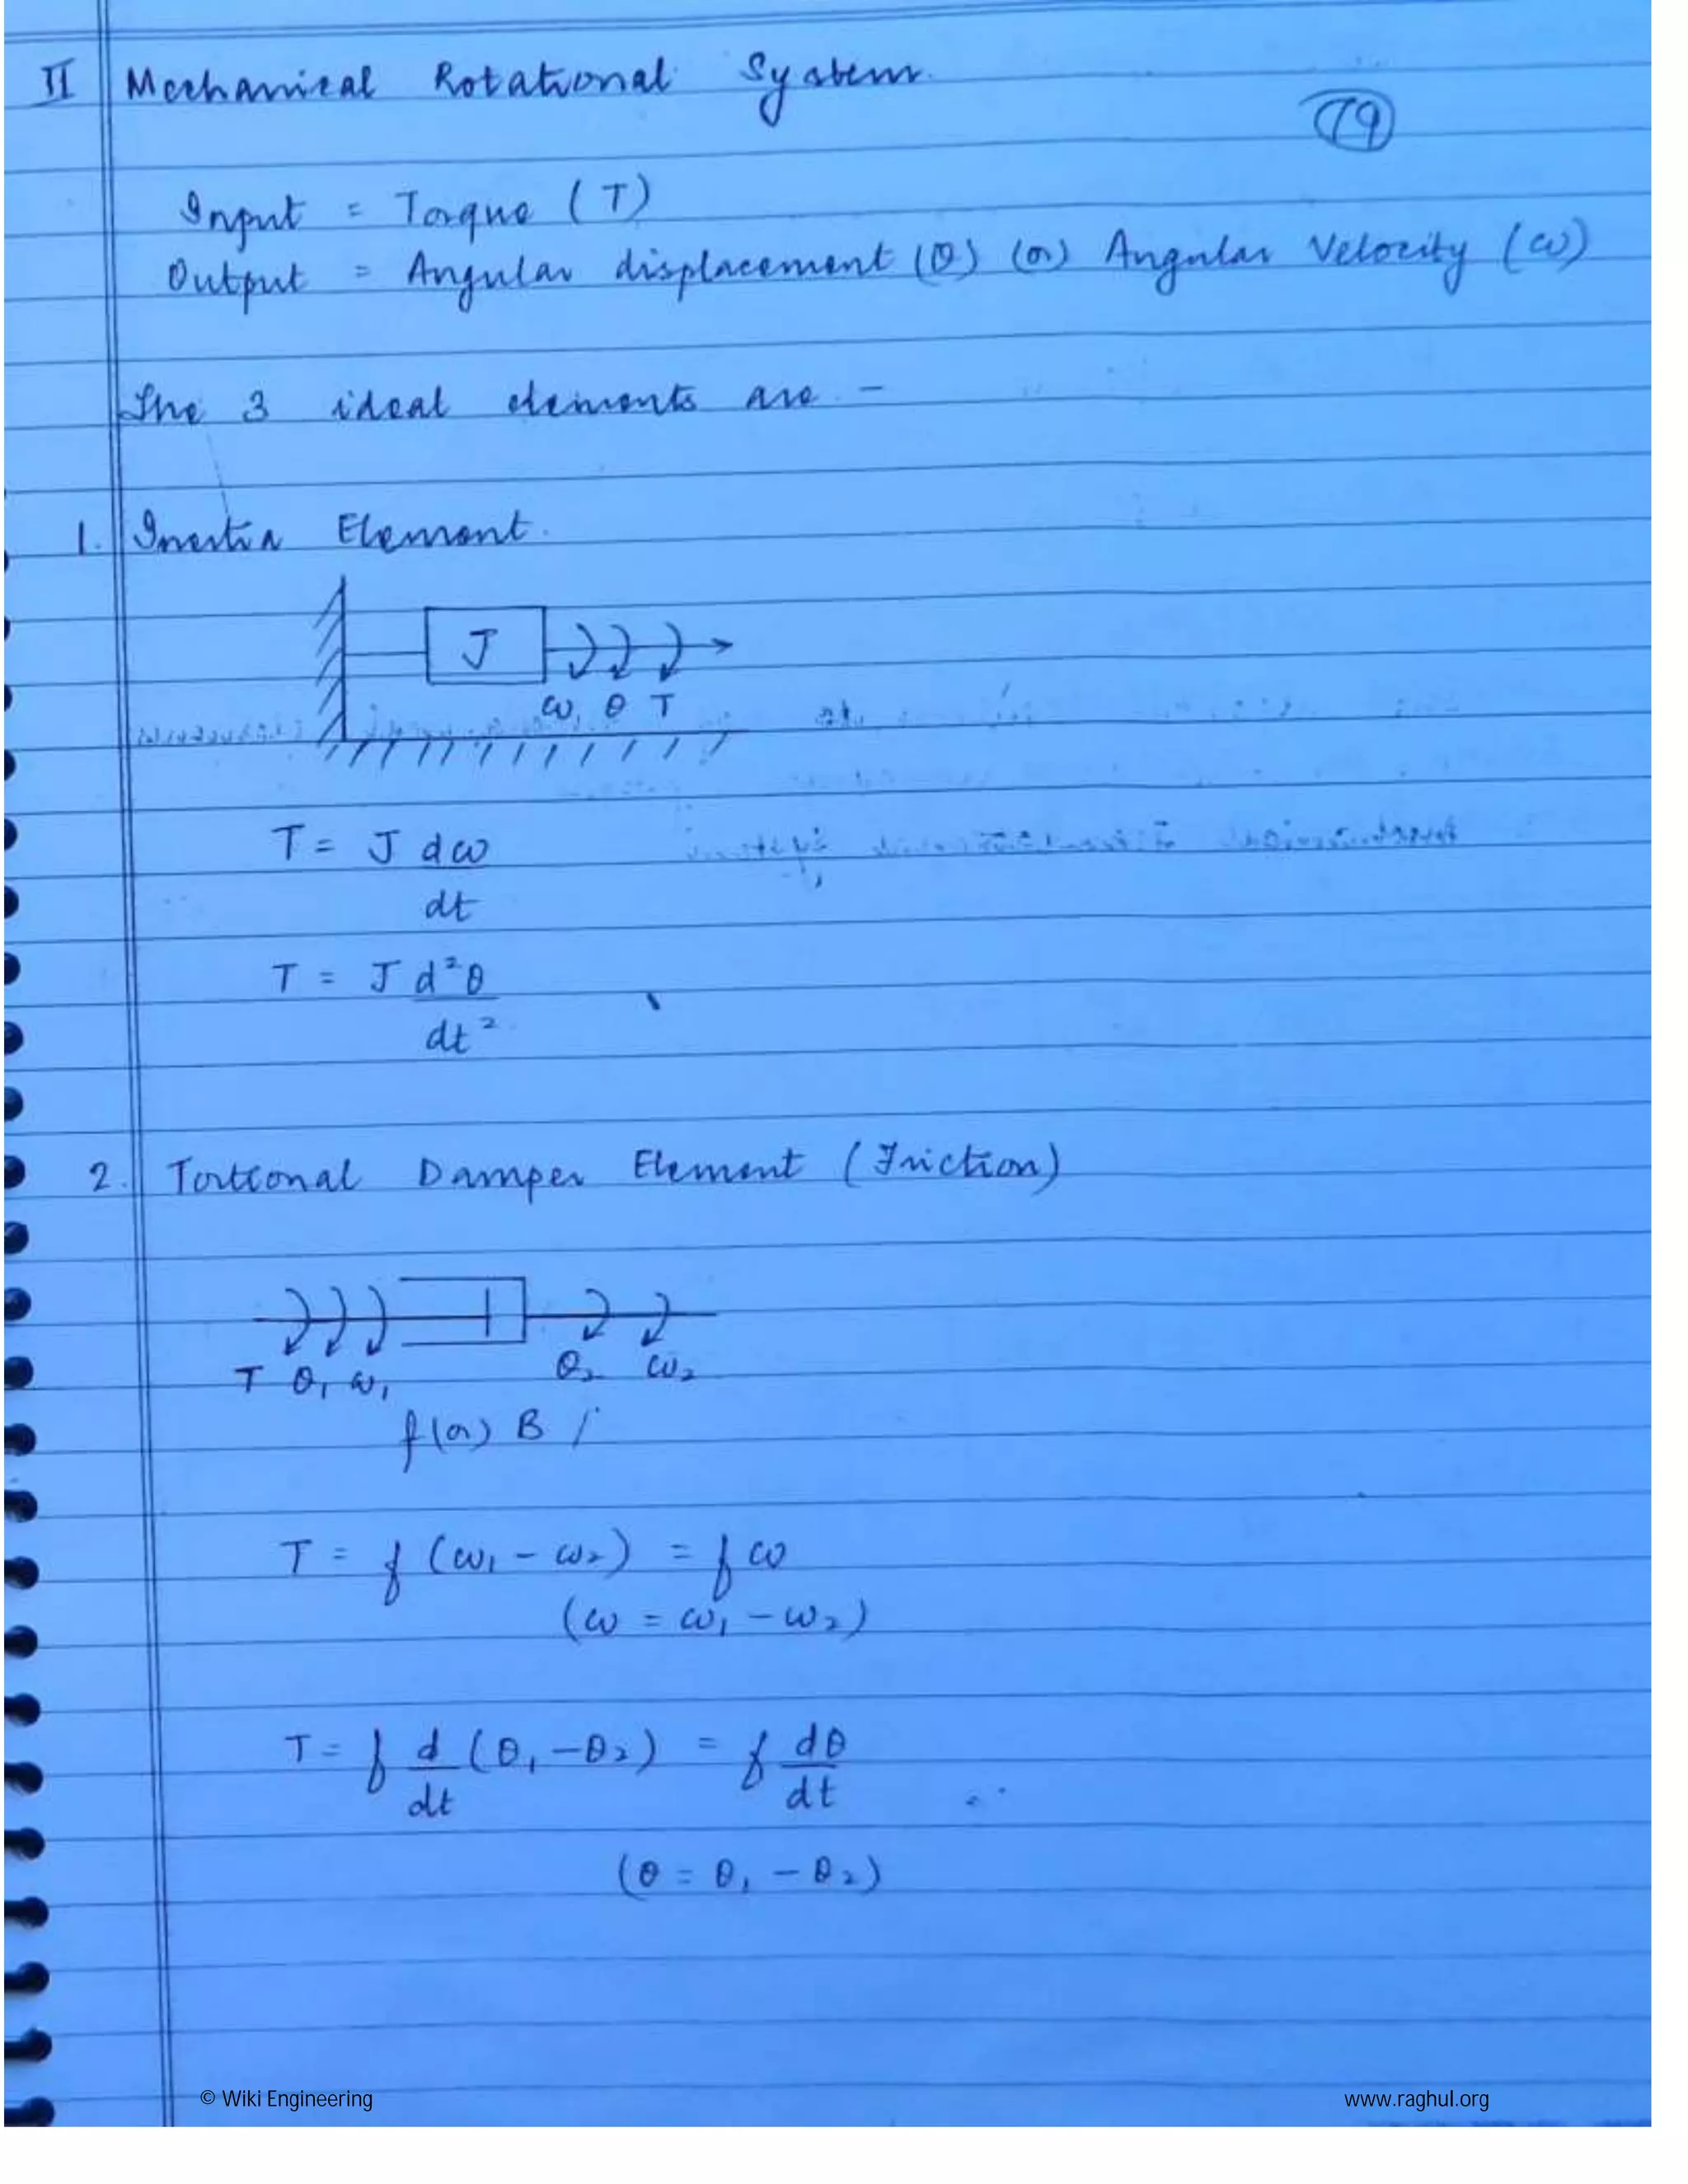 II Mechanical Rotational System.
19
Input = Torque (T)
Output = Angular displacement (θ) (or) Angular Velocity (ω)
The 3 ideal elements are -
1. Inertia Element.
J
ω, θ T
T = J dω
dt
T = J d²θ
dt²
2. Tortional Damper Element (Friction)
T θ₁ ω₁ θ₂ ω₂
f (or) B
T = f (ω₁ - ω₂) = f ω
(ω = ω₁ - ω₂)
T = f d (θ₁ - θ₂) = f dθ
dt dt
(θ = θ₁ - θ₂)
© Wiki Engineering www.raghul.org